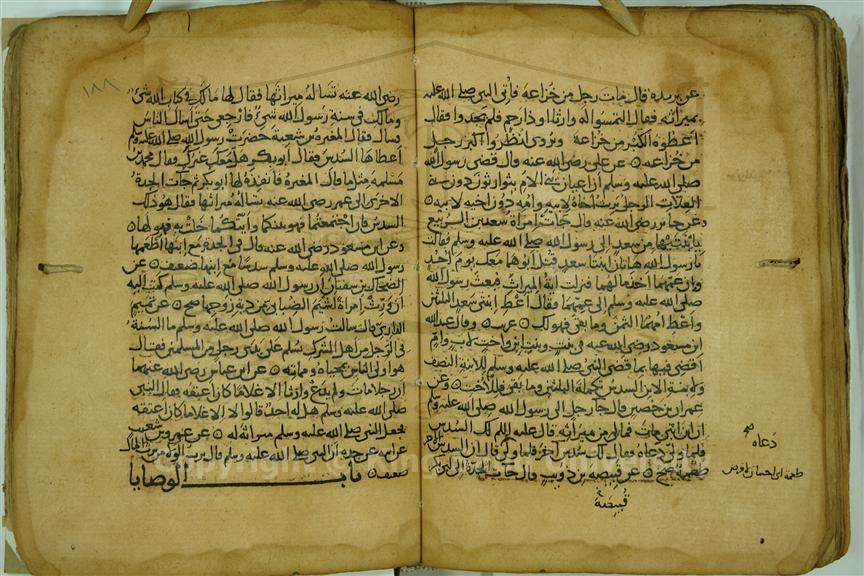 عن بريدة قال مات رجل من خزاعة فأتي النبي صلى الله عليه
بميراثه فقال التمسوا له وارثا او ذا رحم فلم يجدوا فقال
أعطوه الكبر من خزاعة ويروى انظروا اكبر رجل
من خزاعة عن علي رضي الله عنه قال قضى رسول الله
صلى الله عليه وسلم أن أعيان بني الأم يتوارثون دون بني
العلات الرجل يرث أخاه لأبيه وامه دون اخيه لابيه
عن جابر رضي الله عنه قال جاءت امرأة سعد بن الربيع
بابنتيها من سعد إلى رسول الله صلى الله عليه وسلم فقالت
يا رسول الله هاتان ابنتا سعد قتل أبوهما معك يوم أحد
وان عمهما أخذ مالهما فنزلت اية الميراث فبعث رسول الله
صلى الله عليه وسلم إلى عمهما فقال أعط ابنتي سعد الثلثين
وأعط امهما الثمن وما بقي فهو لك غريب وقال عبد الله
ابن مسعود رضي الله عنه في بنت وبنت ابن واخت لاب وام
أقضي فيها بما قضى النبي صلى الله عليه وسلم للابنة النصف
ولابنة الابن السدس تكملة الثلثين وما بقي فللأخت وعن
عمران بن حصين قال جاء رجل إلى رسول الله صلى الله عليه وسلم
ان ابن ابني مات فما لي من ميراثه قال عليه السلام لك السدس
فلما ولى دعاه وقال لك سدس آخر فلما ولى قال ان السدس الآخر
طعمة صحيح عن قبيصة بن ذويب قال جاءت الجدة الى ابي بكر
دعاه
قبيصة
١٨٨
رضي الله عنه تسأله ميراثها فقال لها ما لك في كتاب الله شيء
وما لك في سنة رسول الله شيء فارجعي حتى أسأل الناس
فسأل فقال المغيرة بن شعبة حضرت رسول الله صلى الله عليه وسلم
أعطاها السدس فقال أبو بكر هل معك غيرك فقال محمد بن
مسلمة مثل ما قال المغيرة فأنفذه لها أبو بكر ثم جاءت الجدة
الاخرى الى عمر رضي الله عنه تسأله ميراثها فقال هو ذلك
السدس فان اجتمعتما فهو بينكما وأيتكما خلت به فهو لها
وعن ابن مسعود رضي الله عنه قال في الجدة مع ابنها أطعمها
رسول الله صلى الله عليه وسلم سدسا مع ابنها ضعيف عن
الضحاك بن سفيان أن رسول الله صلى الله عليه وسلم كتب إليه
أن ورث امرأة أشيم الضبابي من دية زوجها صح عن تميم
الداري قال سألت رسول الله صلى الله عليه وسلم ما السنة
في الرجل من أهل الشرك يسلم على يدي رجل من المسلمين فقال
هو أولى الناس بمحياه ومماته عن ابن عباس رضي الله عنهما
أن رجلا مات ولم يدع وارثا إلا غلاما كان أعتقه فقال النبي
صلى الله عليه وسلم هل له احد قالوا لا إلا غلاما كان أعتقه
فجعل النبي صلى الله عليه وسلم ميراثه له عن عمرو بن شعيب
عن أبيه عن جده أن النبي صلى الله عليه وسلم قال يرث الولاء من يرث المال
ضعيف باب الوصايا